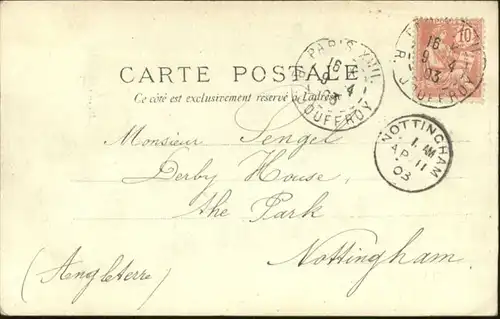 CARTE POSTALE
Ce côté est exclusivement réservé à l'adresse
PARIS XVIII
16
9 4
03
R. JOUFFROY
10
16
9 4
03
R. JOUFFROY
NOTTINGHAM
1. AM
AP 11
03
Monsieur Sengel
Derby House,
the Park
Nottingham.
(Angleterre)